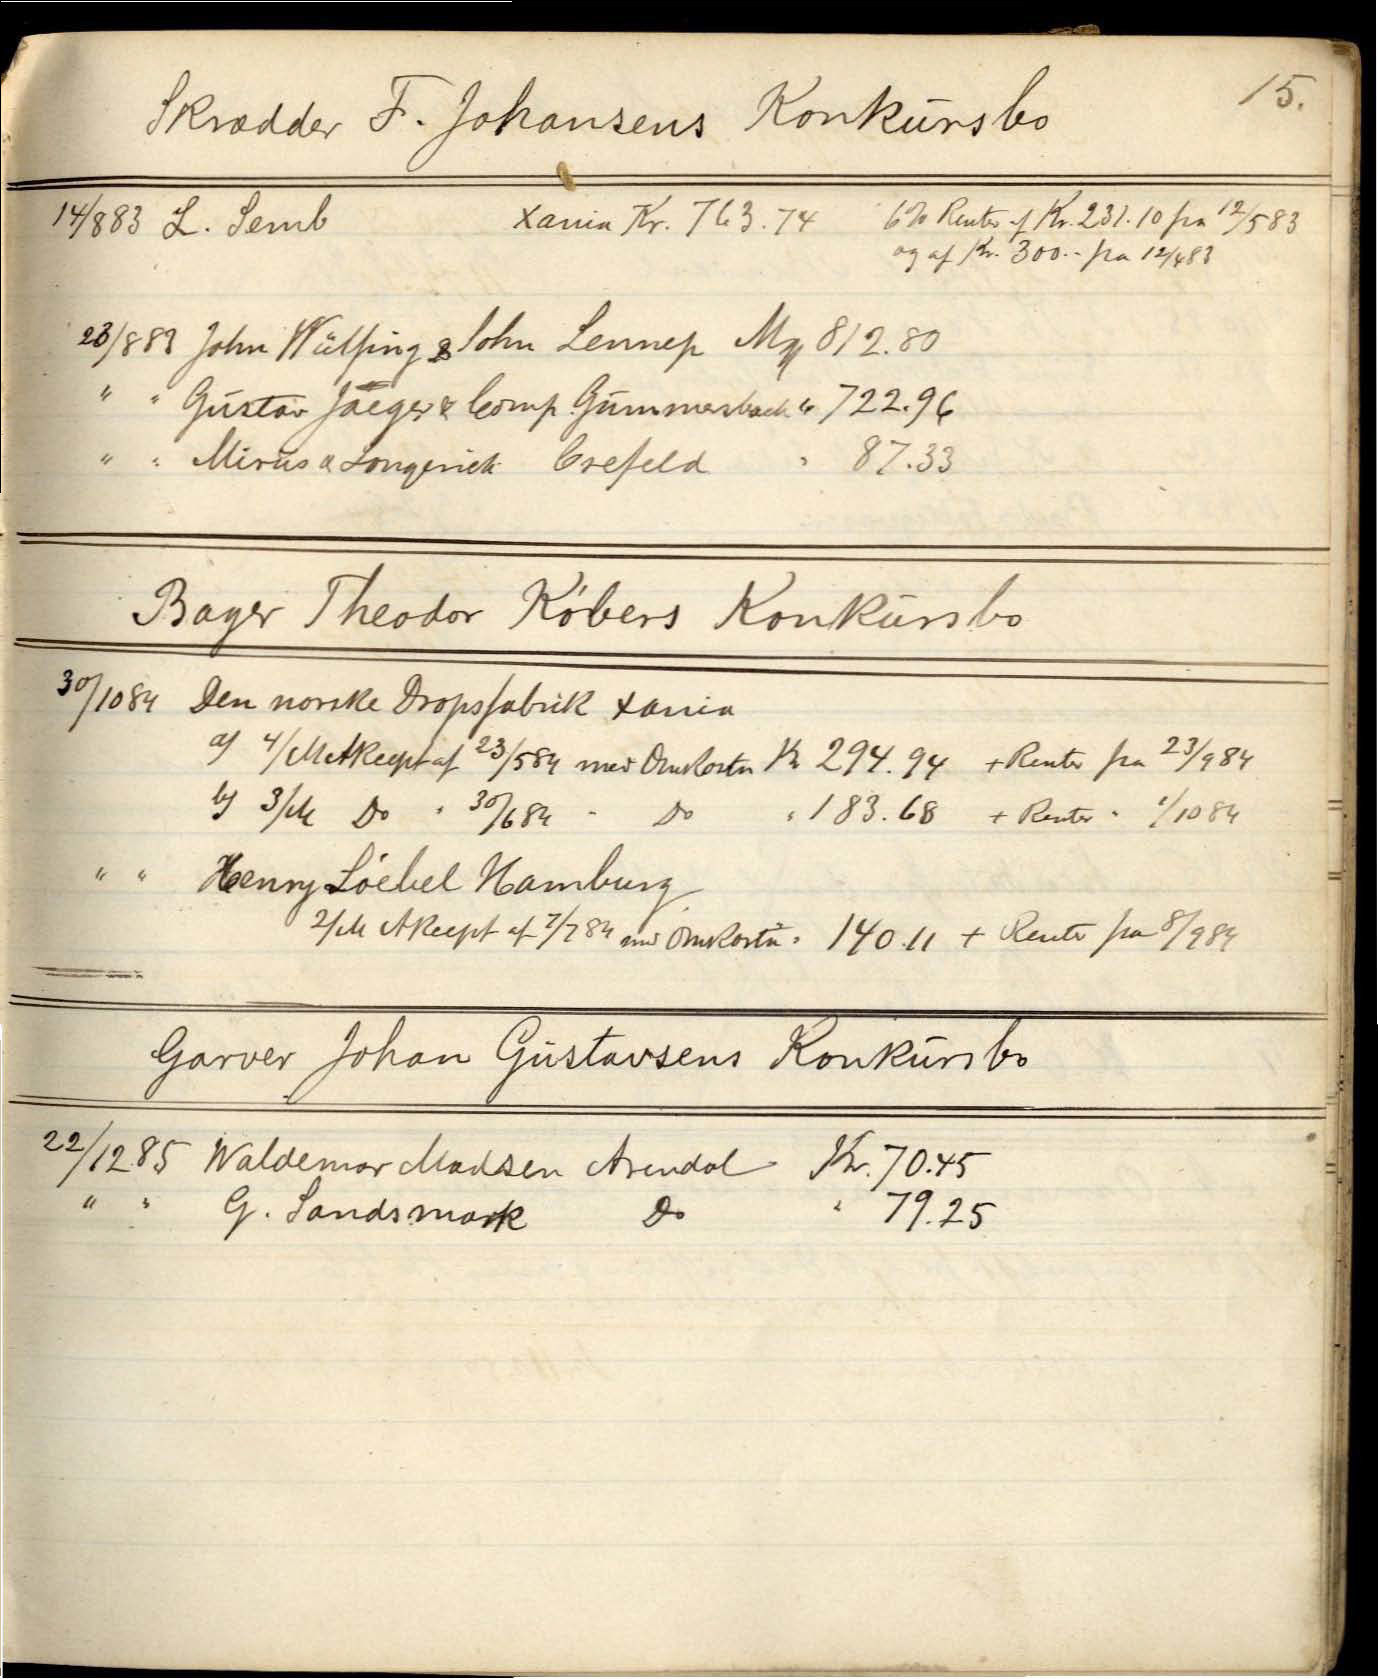 15.
Skrædder F. Johansens Konkūrsbo
14/8 83 L. Semb Xania Kr. 763.74 6% Renter af Kr. 231.10 fra 12/5 83
og af Kr. 300.- fra 12/4 83
23/8 83 John Wülfing & Sohn Lennep Mk 812.80
" " Gūstav Jaeger & Comp. Gūmmersbach " 722.96
" " Mirūs & Longerich Crefeld " 87.33
Bager Theodor Købers Konkūrsbo
30/10 84 Den norske Dropsfabrik Xania
a) 4/M Akcept af 23/5 84 med Omkostn Kr 294.94 + Renter fra 23/9 84
b) 3/M Do " 30/6 84 " Do " 183.68 + Renter " 1/10 84
" " Henry Löebel Hamburg
2/M Akcept af 7/7 84 med Omkostn " 140.11 + Renter fra 8/9 84
Garver Johan Gūstavsens Konkūrsbo
22/12 85 Waldemar Madsen Arendal Kr. 70.45
" " G. Sandsmark Do " 79.25